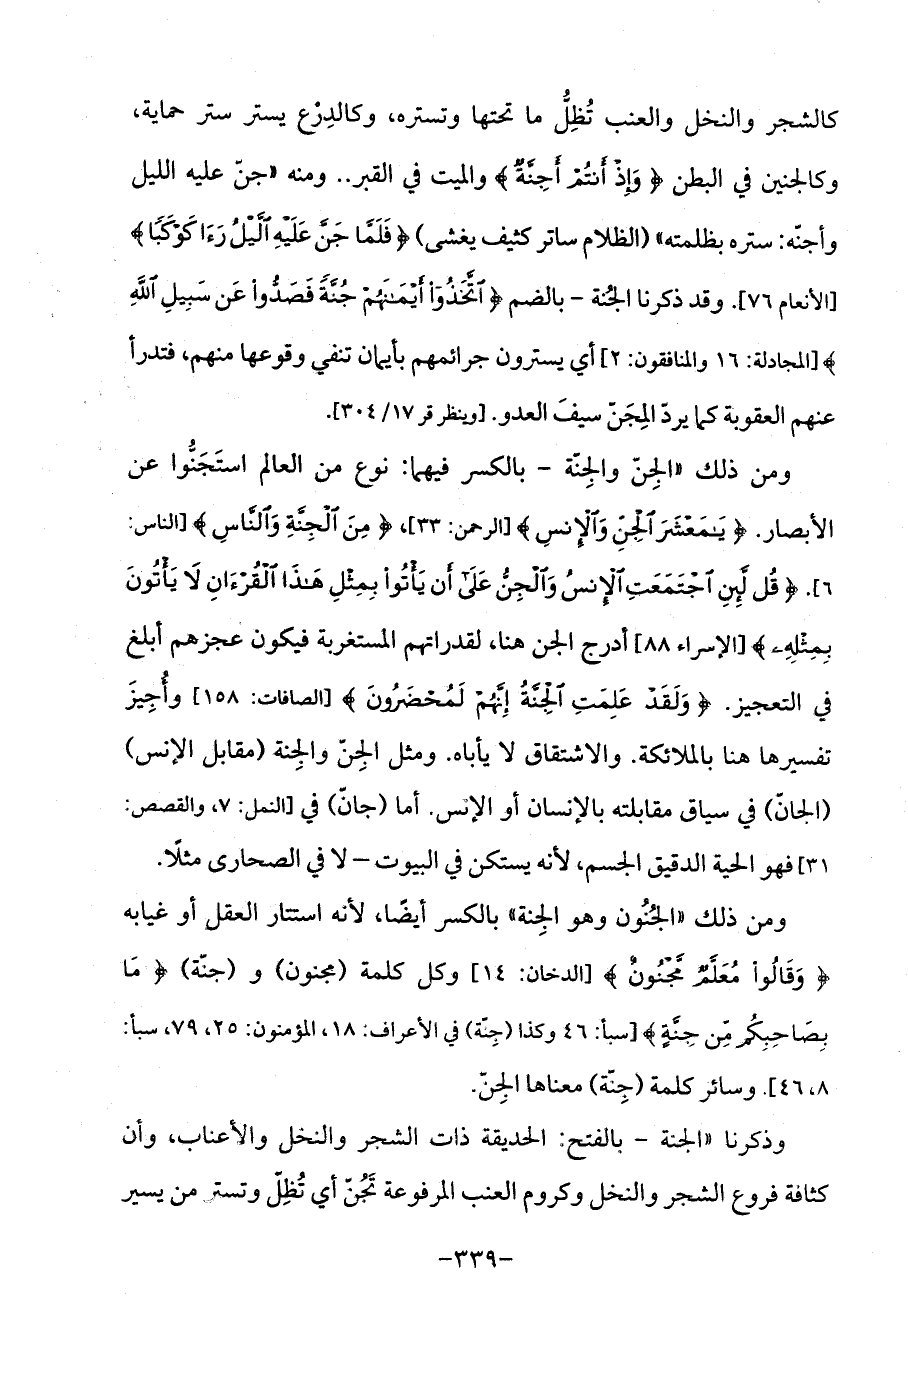 كالشجر والنخل والعنب تُظِلُّ ما تحتها وتستره، وكالدِرْع يستر ستر حماية،
وكالجنين في البطن ﴿ وَإِذْ أَنتُمْ أَجِنَّةٌ ﴾ والميت في القبر.. ومنه «جنّ عليه الليل
وأجنّه: ستره بظلمته» (الظلام ساتر كثيف يغشى) ﴿ فَلَمَّا جَنَّ عَلَيْهِ ٱلَّيْلُ رَءَا كَوْكَبًا ﴾
[الأنعام ٧٦]. وقد ذكرنا الجُنة – بالضم ﴿ ٱتَّخَذُوٓا۟ أَيْمَـٰنَهُمْ جُنَّةً فَصَدُّوا۟ عَن سَبِيلِ ٱللَّهِ
﴾ [المجادلة: ١٦ والمنافقون: ٢] أي يسترون جرائمهم بأيمان تنفي وقوعها منهم، فتدرأ
عنهم العقوبة كما يردّ المِجَنّ سيفَ العدو. [وينظر قر ١٧/ ٣٠٤].
ومن ذلك «الجِنّ والجِنّة – بالكسر فيهما: نوع من العالم استَجَنُّوا عن
الأبصار. ﴿ يَـٰمَعْشَرَ ٱلْجِنِّ وَٱلْإِنسِ ﴾ [الرحمن: ٣٣]، ﴿ مِنَ ٱلْجِنَّةِ وَٱلنَّاسِ ﴾ [الناس:
٦]. ﴿ قُل لَّئِنِ ٱجْتَمَعَتِ ٱلْإِنسُ وَٱلْجِنُّ عَلَىٰٓ أَن يَأْتُوا۟ بِمِثْلِ هَـٰذَا ٱلْقُرْءَانِ لَا يَأْتُونَ
بِمِثْلِهِۦ ﴾ [الإسراء ٨٨] أدرج الجن هنا، لقدراتهم المستغربة فيكون عجزهم أبلغ
في التعجيز. ﴿ وَلَقَدْ عَلِمَتِ ٱلْجِنَّةُ إِنَّهُمْ لَمُحْضَرُونَ ﴾ [الصافات: ١٥٨] وأُجِيزَ
تفسيرها هنا بالملائكة. والاشتقاق لا يأباه. ومثل الجِنّ والجِنة (مقابل الإنس)
(الجانّ) في سياق مقابلته بالإنسان أو الإنس. أما (جانّ) في [النمل: ٧، والقصص:
٣١] فهو الحية الدقيق الجسم، لأنه يستكن في البيوت – لا في الصحارى مثلًا.
ومن ذلك «الجُنُون وهو الجِنة» بالكسر أيضًا، لأنه استتار العقل أو غيابه
﴿ وَقَالُوا۟ مُعَلَّمٌ مَّجْنُونٌ ﴾ [الدخان: ١٤] وكل كلمة (مجنون) و (جنّة) ﴿ مَا
بِصَاحِبِكُم مِّن جِنَّةٍ ﴾ [سبأ: ٤٦ وكذا (جِنّة) في الأعراف: ١٨، المؤمنون: ٢٥، ٧٩، سبأ:
٨، ٤٦]. وسائر كلمة (جِنّة) معناها الجِنّ.
وذكرنا «الجنة – بالفتح: الحديقة ذات الشجر والنخل والأعناب، وأن
كثافة فروع الشجر والنخل وكروم العنب المرفوعة تَجُنّ أي تُظِلّ وتستر من يسير
-٣٣٩-